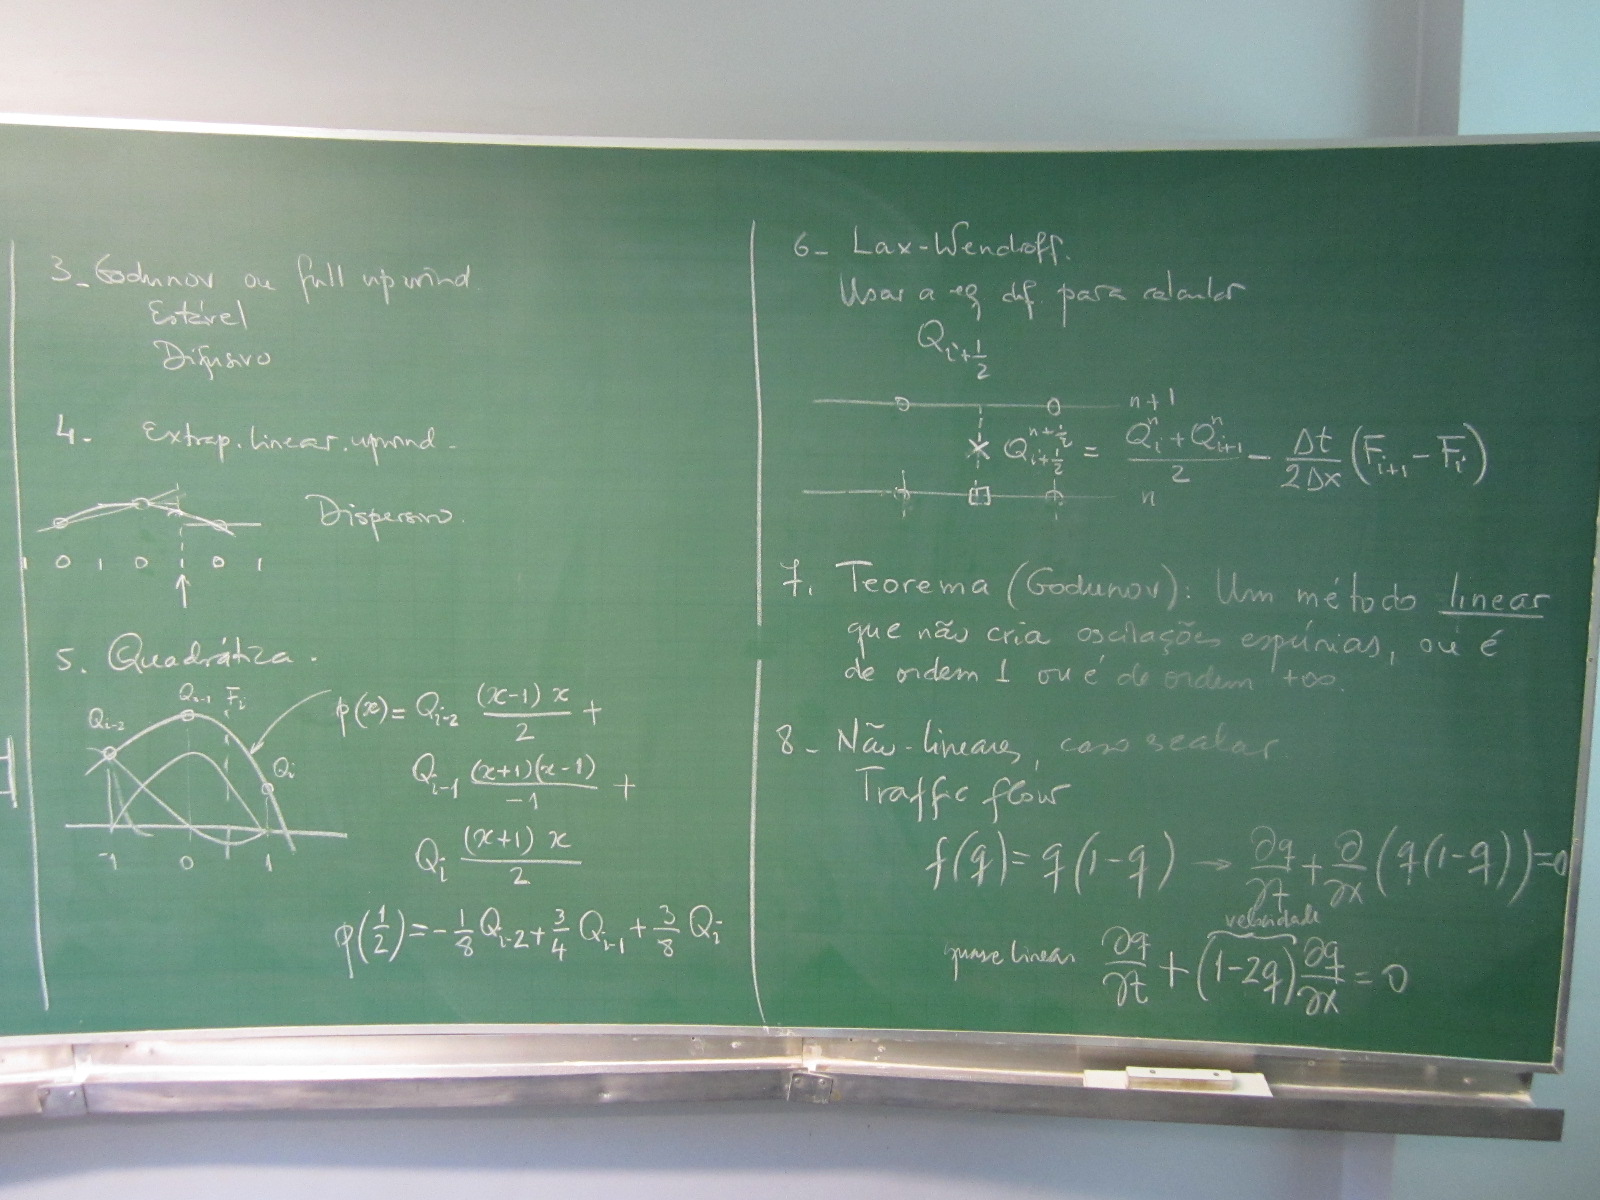 3_ Godunov ou full upwind
Estável
Difusivo
4. Extrap. linear. upwind.
Dispersivo.
1 0 1 0 0 1
5. Quadrática.
Q_{i-2} Q_{i-1} F_i Q_i
-1 0 1
p(x) = Q_{i-2} \frac{(x-1) x}{2} +
Q_{i-1} \frac{(x+1)(x-1)}{-1} +
Q_i \frac{(x+1) x}{2}
p(\frac{1}{2}) = -\frac{1}{8} Q_{i-2} + \frac{3}{4} Q_{i-1} + \frac{3}{8} Q_i
6_ Lax-Wendroff.
Usar a eq dif. para calcular
Q_{i+\frac{1}{2}}
n+1
Q_{i+\frac{1}{2}}^{n+\frac{1}{2}} = \frac{Q_i^n + Q_{i+1}^n}{2} - \frac{Δt}{2Δx} (F_{i+1} - F_i)
n
7. Teorema (Godunov): Um método linear
que não cria oscilações espúrias, ou é
de ordem 1 ou é de ordem +∞.
8_ Não-lineares, caso scalar.
Traffic flow
f(q) = q(1-q) → \frac{∂q}{∂t} + \frac{∂}{∂x} (q(1-q)) = 0
velocidade
quase linear \frac{∂q}{∂t} + (1-2q) \frac{∂q}{∂x} = 0